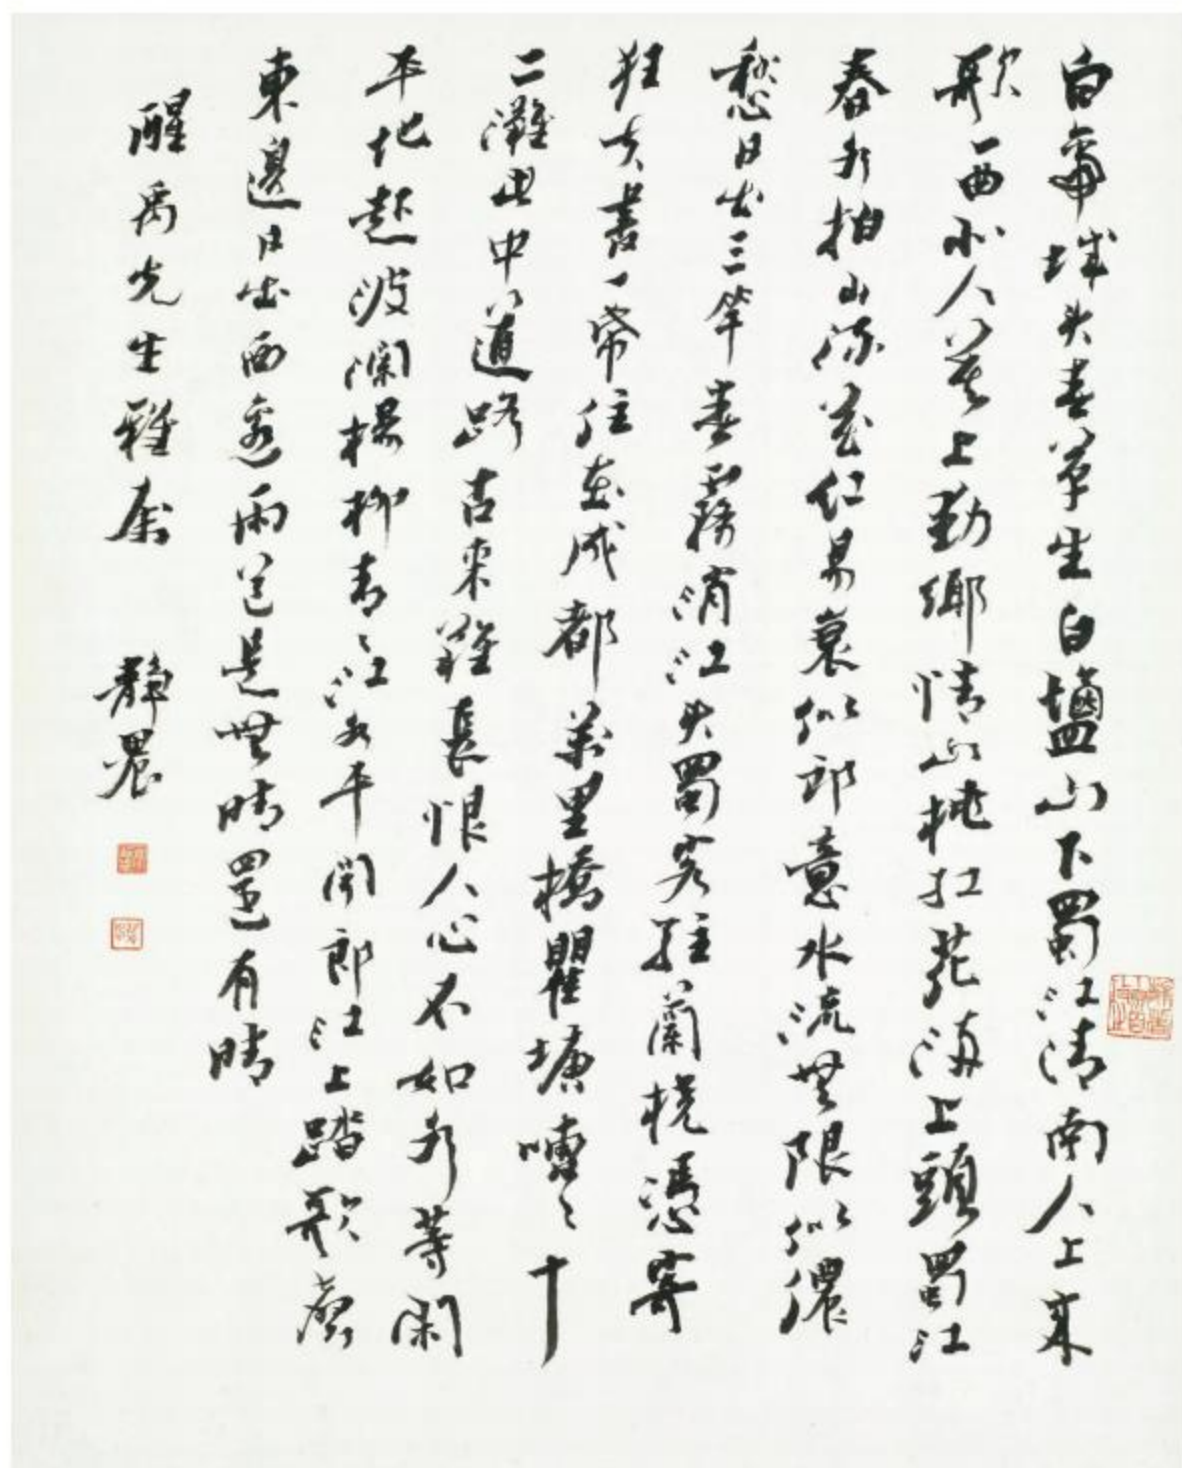 白帝城頭春草生白鹽山下蜀江清南人上來
歌一曲北人莫上動鄉情山桃紅花滿上頭蜀江
春水拍山流花紅易衰似郎意水流無限似儂
愁日出三竿春霧消江頭蜀客駐蘭橈憑寄
狂夫書一帋住在成都萬里橋瞿塘嘈〻十
二灘此中道路古來難長恨人心不如水等閑
平地起波瀾楊柳青〻江水平聞郎江上踏歌聲
東邊日出西邊雨道是無晴還有晴
醒禹先生雅屬
靜農